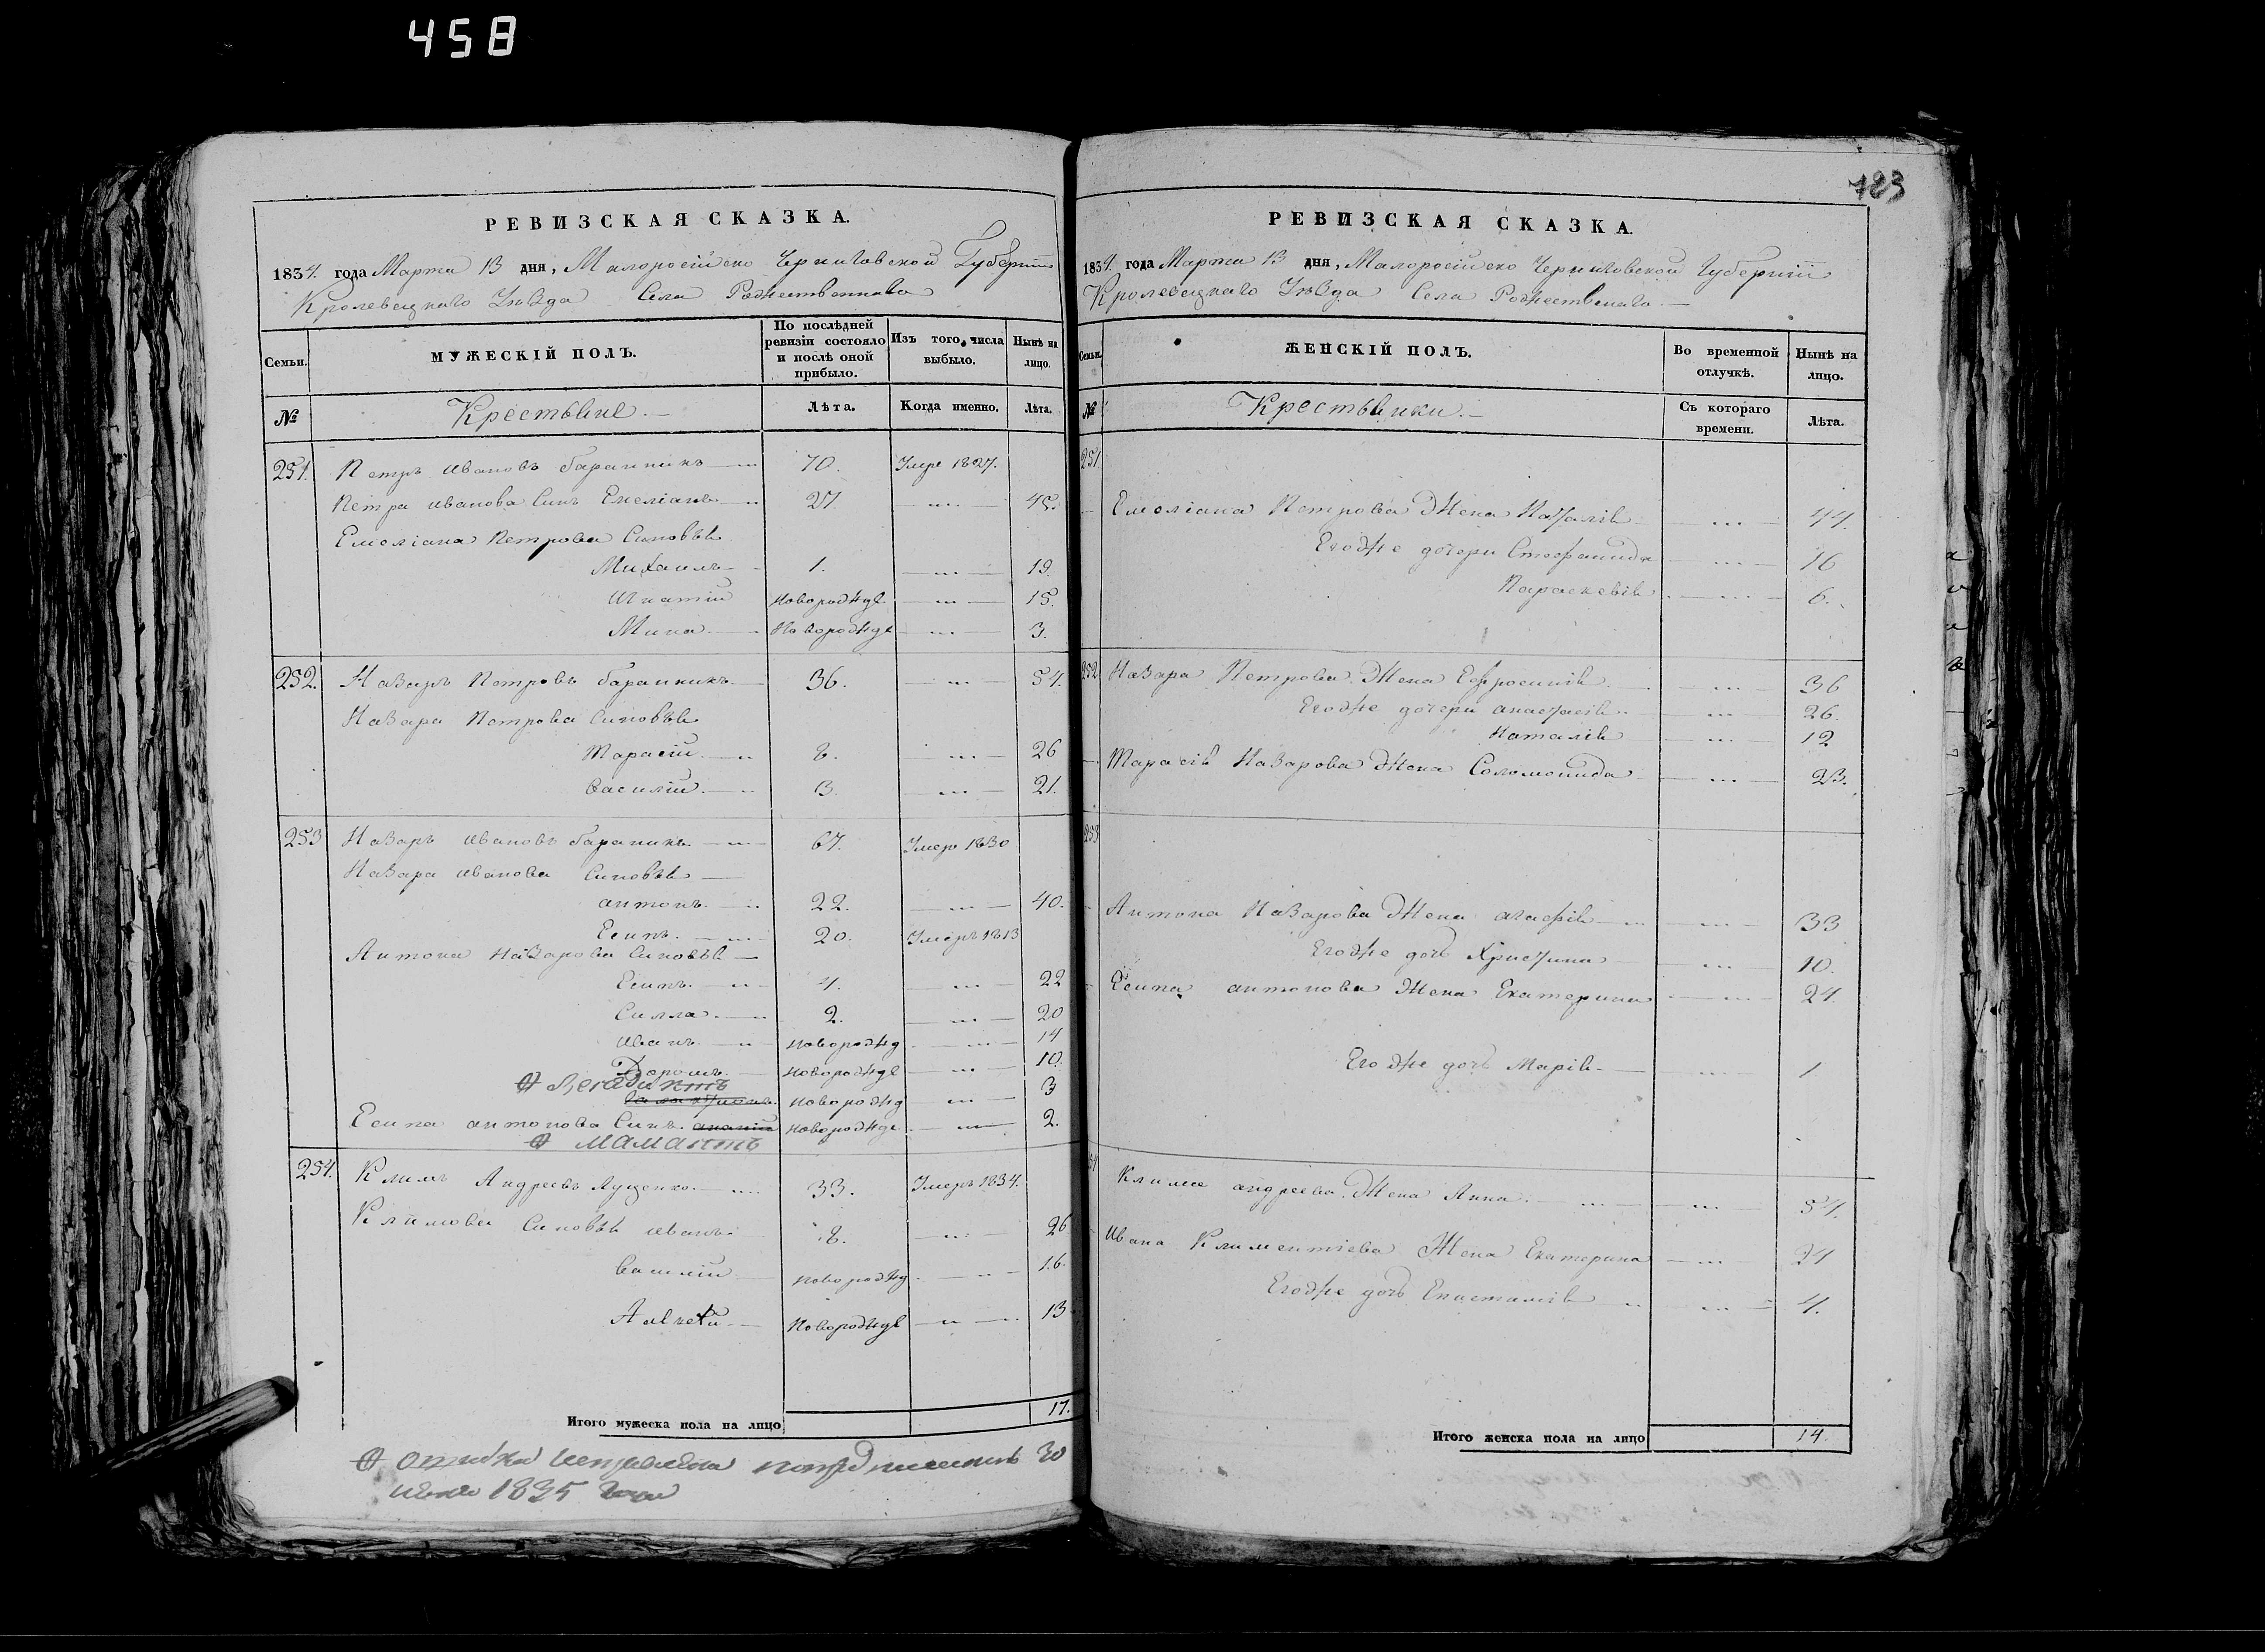 458
РЕВИЗСКАЯ СКАЗКА.
1834. года Марта 13 дня, Малоросійско Черниговской Губерніи
Кролевецкаго Уѣзда Села Рождественнаго
Семьи.
МУЖЕСКІЙ ПОЛЪ.
По послѣдней ревизіи состояло и послѣ оной прибыло.
Изъ того числа выбыло.
Нынѣ на лицо.
№
Крестьяне.
Лѣта.
Когда именно.
Лѣта.
251. Петръ Ивановъ Баранникъ 70. Умре 1827.
Петра Иванова Синъ Емеліанъ 27. 45.
Емеліана Петрова Синовья
Михаилъ 1. 19.
Игнатій новорожде 15.
Мина Новорожде 3.
252. Назаръ Петровъ Баранникъ 36. 54.
Назара Петрова Синовья
Тарасій 8. 26
Василій 3. 21.
253 Назаръ Ивановъ Баранникъ 67. Умеръ 1830
Назара Иванова Синовья
Антонъ 22. 40.
Есипъ 20. Умеръ 1813
Антона Назарова Синовья
Есипъ 4. 22
Силла 2. 20
Иванъ новорожд 14
новорожде 10.
новорожд 3
Есипа Антонова Синъ Ананій новорожде 2.
Мамантъ
254. Климъ Андреевъ Луценко 33. Умеръ 1834.
Климова Синовья Иванъ 8. 26
Василій новорожд 16.
Алексѣй Новорожде 13
Итого мужеска пола на лицо 17.
ошибка исправлена 30
1835 года
783
РЕВИЗСКАЯ СКАЗКА.
1834. года Марта 13 дня, Малоросійско Черниговской Губерніи
Кролевецкаго Уѣзда Села Рождественаго.
Семьи.
ЖЕНСКІЙ ПОЛЪ.
Во временной отлучкѣ.
Нынѣ на лицо.
№
Крестьянки.
Съ котораго времени.
Лѣта.
251
Емеліана Петрова Жена Наталія 44.
Егожне дочери Стефанида 16
Параскевія 6.
252 Назара Петрова Жена Ефросинія 36
Егожне дочери Анастасія 26.
Наталія 12
Тарасія Назарова Жена Соломонида 23.
253
Антона Назарова Жена Агафія 33
Егожне дочь Христина 10.
Есипа Антонова Жена Екатерина 24.
Егожне дочь Марія 1.
Клима Андреева Жена Анна 54.
Ивана Климентіева Жена Екатерина 24
Егожне дочь 4.
Итого женска пола на лицо 14.